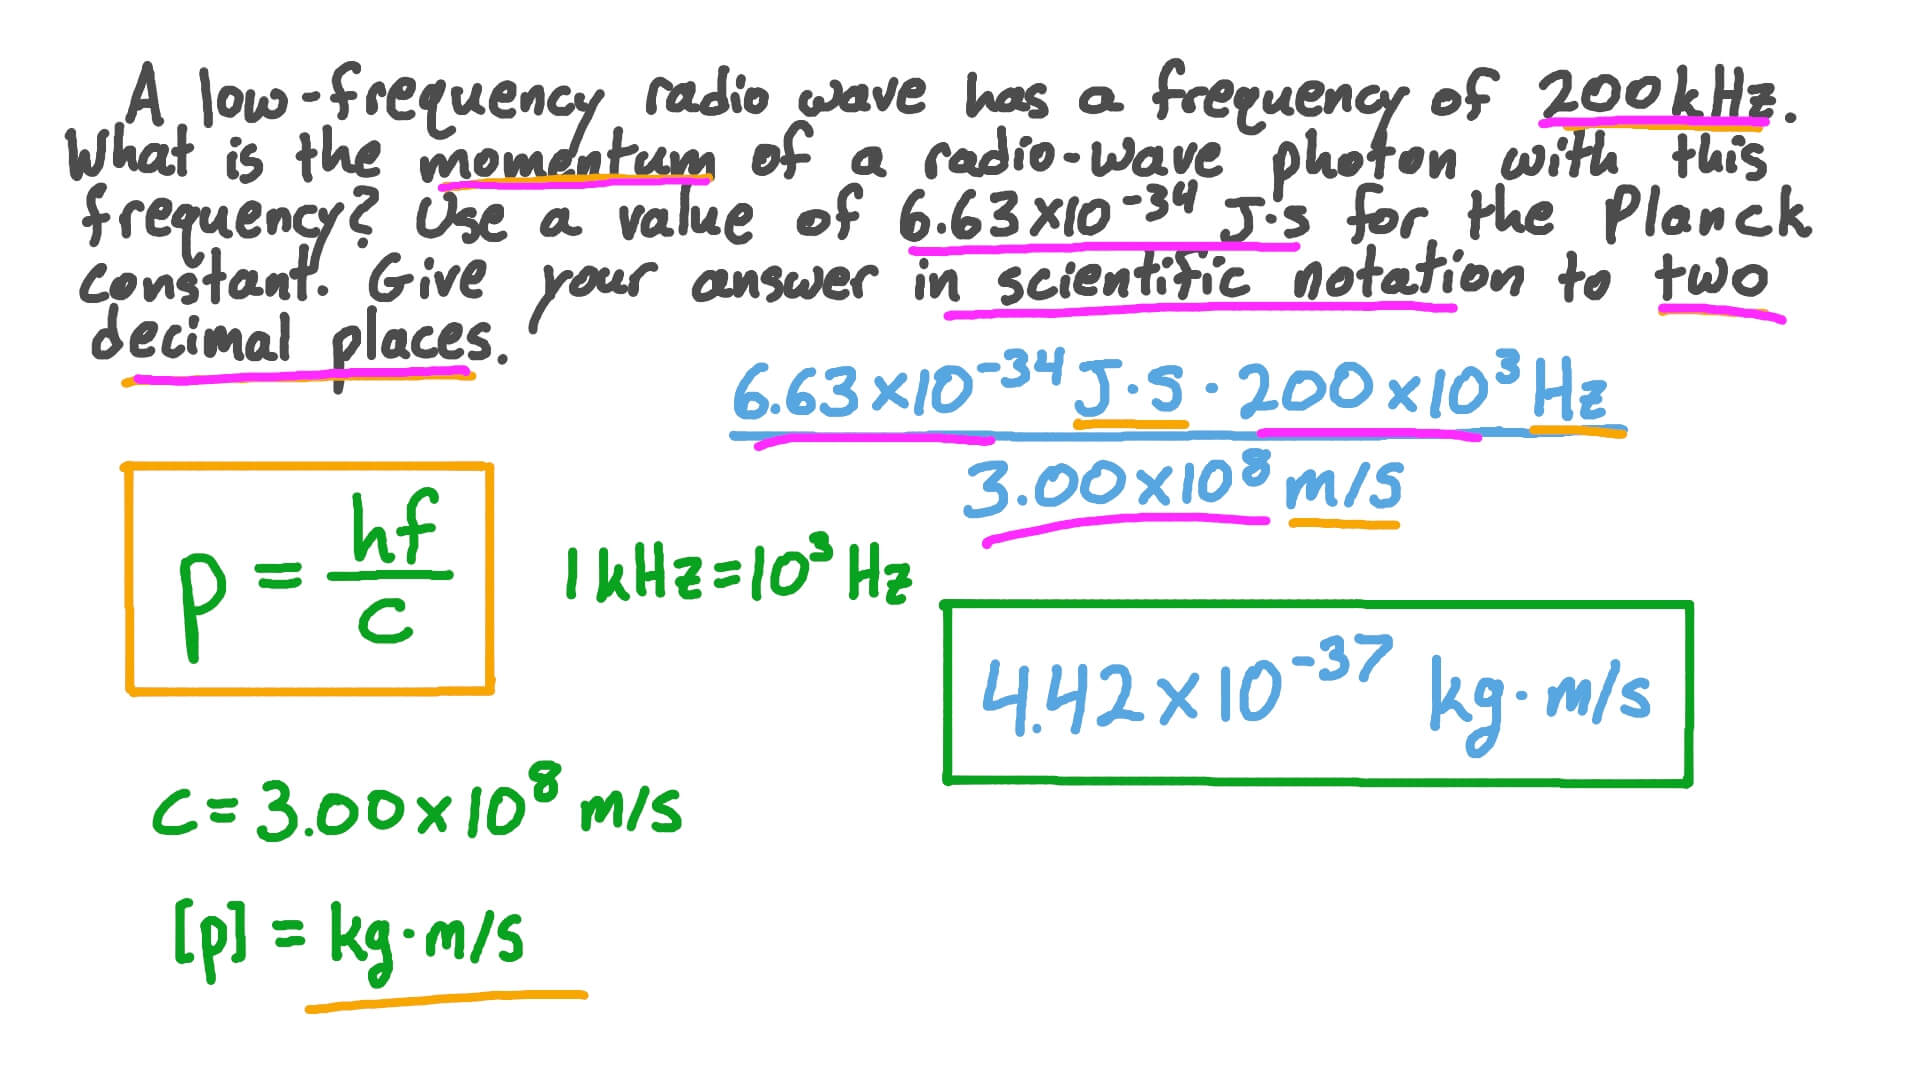 A low-frequency radio wave has a frequency of 200kHz.
What is the momentum of a radio-wave photon with this
frequency? Use a value of 6.63×10⁻³⁴ J·s for the Planck
constant. Give your answer in scientific notation to two
decimal places.
6.63×10⁻³⁴ J·s · 200×10³ Hz
3.00×10⁸ m/s
p = hf/c
1 kHz=10³ Hz
4.42×10⁻³⁷ kg·m/s
c=3.00×10⁸ m/s
[p] = kg·m/s